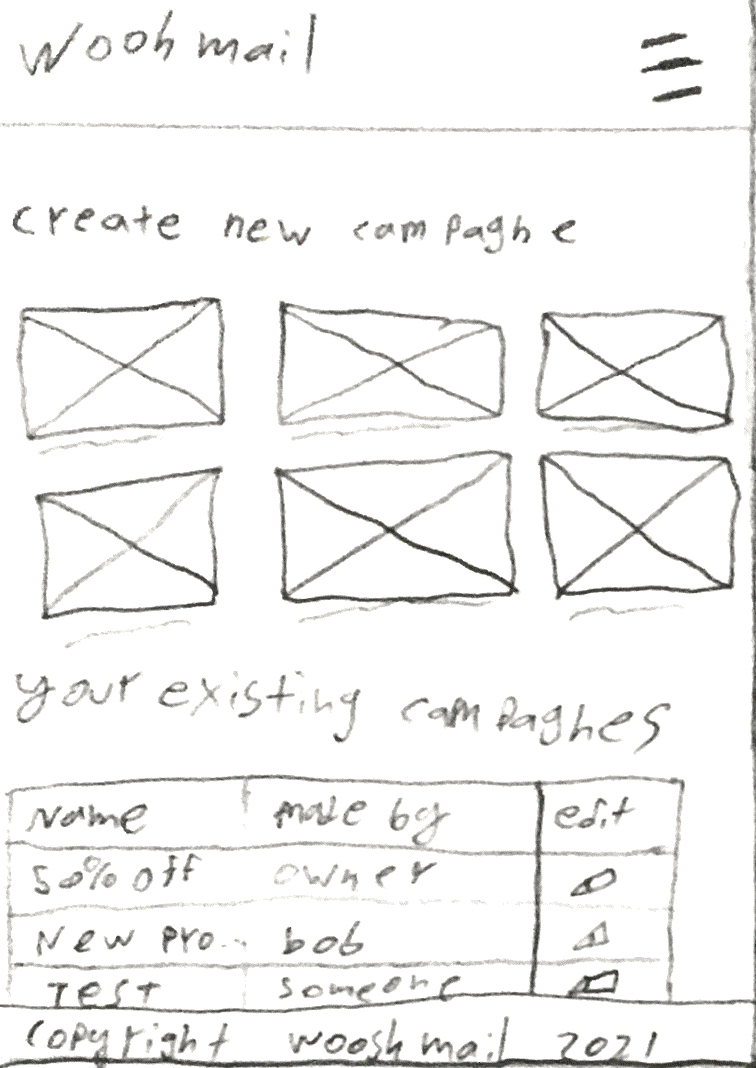 woohmail
create new campaghe
your existing campaghes
Name made by edit
50% off owner
New pro... bob
Test someone
Copyright wooshmail 2021